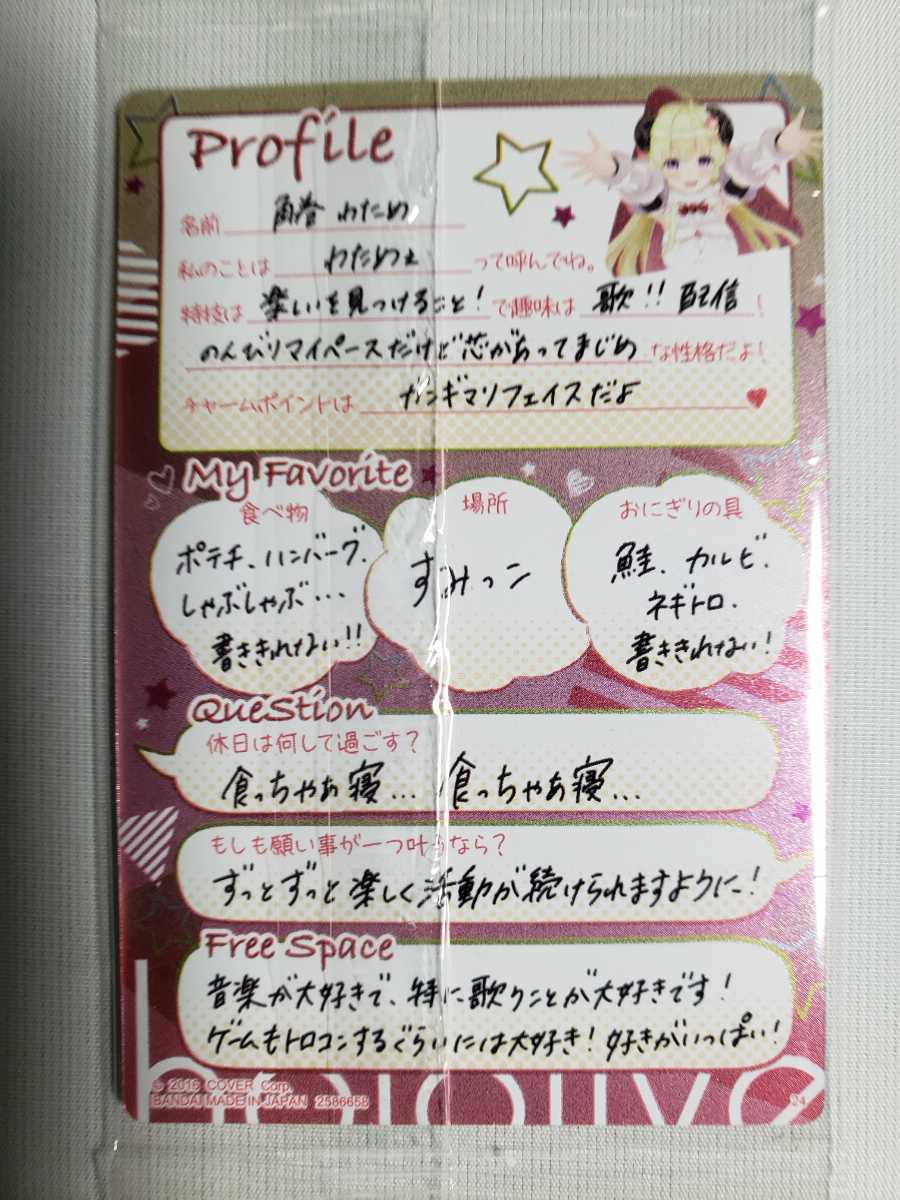 Profile
名前 角巻 わため
私のことは わためぇ って呼んでね。
特技は 楽しいを見つけること! で趣味は 歌!! 配信 !
のんびりマイペースだけど芯があってまじめ な性格だよ!
チャームポイントは ガンギマリフェイスだよ
My Favorite
食べ物
ポテチ、ハンバーグ、
しゃぶしゃぶ...
書ききれない!!
場所
すみっこ
おにぎりの具
鮭、カルビ、
ネギトロ、
書ききれない!
Question
休日は何して過ごす?
食っちゃあ寝... 食っちゃあ寝...
もしも願い事が一つ叶うなら?
ずっとずっと楽しく活動が続けられますように!
Free Space
音楽が大好きで、特に歌うことが大好きです!
ゲームもトロコンするぐらいには大好き! 好きがいっぱい!
© 2016 COVER Corp.
BANDAI MADE IN JAPAN 2586658
24
hololive